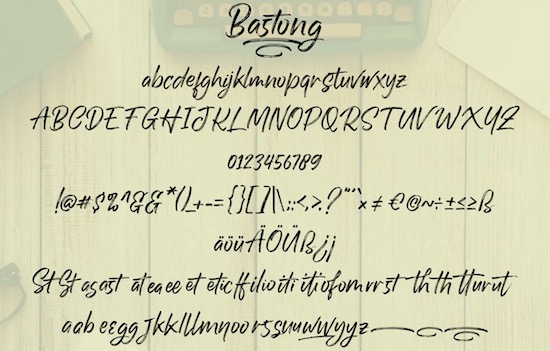 Bastong
abcdefghijklmnopqrstuvwxyz
ABCDEFGHIJKLMNOPQRSTUVWXYZ
0123456789
!@#$%^&&*()_+-={}[]|\:;<,>.?"'`×≠€@~÷±≤≥ß
äöüÄÖÜß¿¡
St St as ast at ea ee et etic ff ilio iti iti of om rr st th th tt ur ut
a a b e e g g J k k l l l m n o o r s s u u w w y y z